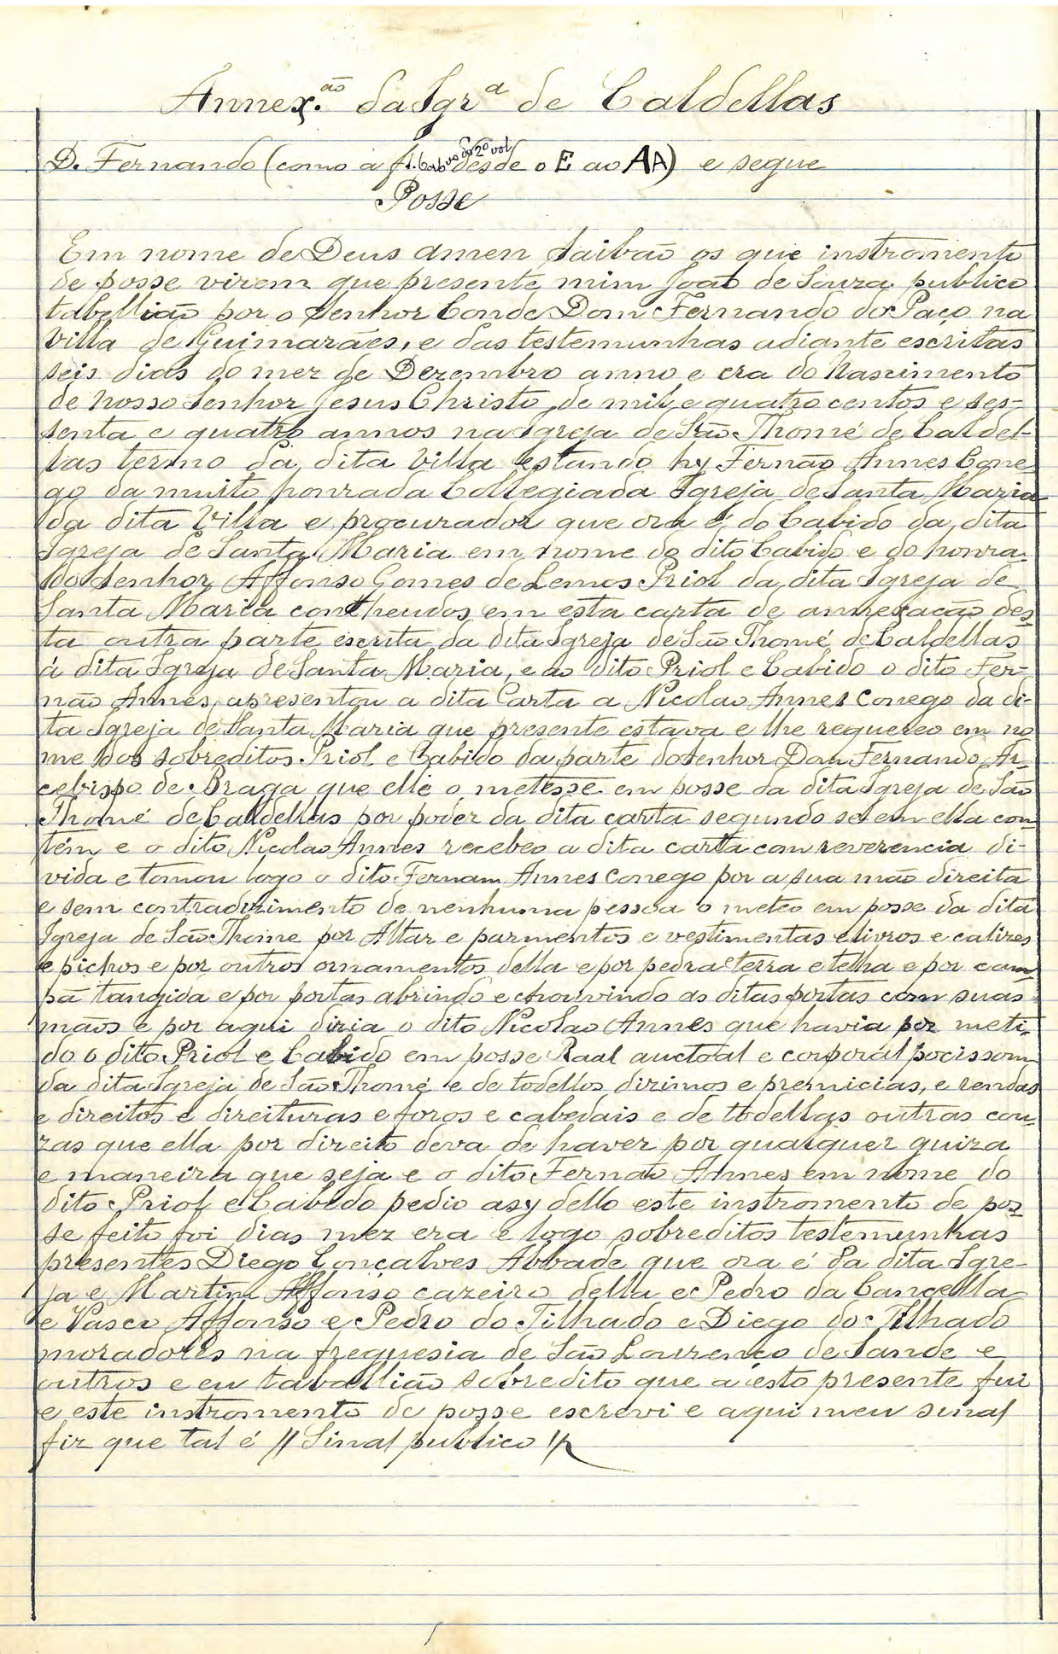 Annex.ão da Igr.a de Caldellas
D. Fernando (como a f. do 2º vol desde o E ao AA) e segue
Posse
Em nome de Deus amen Saibão os que instromento
de posse virem que presente mim João de Souza publico
tabellião por o Senhor Conde Dom Fernando do Paço na
Villa de Guimarães, e das testemunhas adiante escritas
seis dias do mez de Dezembro anno e era do Nascimento
de Nosso Senhor Jesus Christo de mil e quatro centos e ses-
senta e quatro annos na Igreja de São Thomé de Caldel-
las termo da dita Villa estando hy Fernão Annes Cone-
go da muito honrada Collegiada Igreja de Santa Maria
da dita Villa e procurador que ora é do Cabido da dita
Igreja de Santa Maria em nome do dito Cabido e do honra-
do Senhor Affonso Gomes de Lemos Priol da dita Igreja de
Santa Maria contheudos em esta carta de annexação des-
ta outra parte escrita da dita Igreja de São Thomé de Caldellas
á dita Igreja de Santa Maria, e ao dito Priol e Cabido o dito Fer-
não Annes, apresentou a dita Carta a Nicolao Annes Conego da di-
ta Igreja de Santa Maria que presente estava e lhe requereo em no
me dos sobreditos Priol e Cabido da parte do Senhor Dom Fernando Ar-
cebispo de Braga que elle o metesse em posse da dita Igreja de São
Thomé de Caldellas por poder da dita carta segundo se em ella con-
tem e o dito Nicolao Annes recebeo a dita carta com reverencia di-
vida e tomou logo o dito Fernam Annes Conego por a sua mão direita
e sem contradizimento de nenhuma pessoa o meteo em posse da dita
Igreja de São Thome por Altar e parmentos e vestimentas e livros e calizes
e pichos e por outros ornamentos della e por pedra e terra e telha e por cam-
pã tangida e por portas abrindo e chouvindo as ditas portas com suas
mãos e por aqui diria o dito Nicolao Annes que havia por meti-
do o dito Priol e Cabido em posse Raal auctoal e corporal pocissom
da dita Igreja de São Thomé e de todellos dizimos e premicias, e rendas
e direitos e direituras e foros e cabedais e de todellas outras cou-
zas que ella por direito deva de haver por qualquer guiza
e maneira que seja e o dito Fernão Annes em nome do
dito Priol e Cabido pedio asy dello este instromento de pos-
se feito foi dias mez era e logo sobreditos testemunhas
presentes Diego Gonçalves Abbade que ora é da dita Igre-
ja e Martim Affonso cazeiro della e Pedro da Cancella
e Vasco Affonso e Pedro do Tilhado e Diego do Tilhado
moradores na freguesia de São Lourenço de Sande e
outros e eu taballião sobredito que a esto presente fui
e este instromento de posse escrevi e aqui meu sinal
fiz que tal é // Sinal publico //